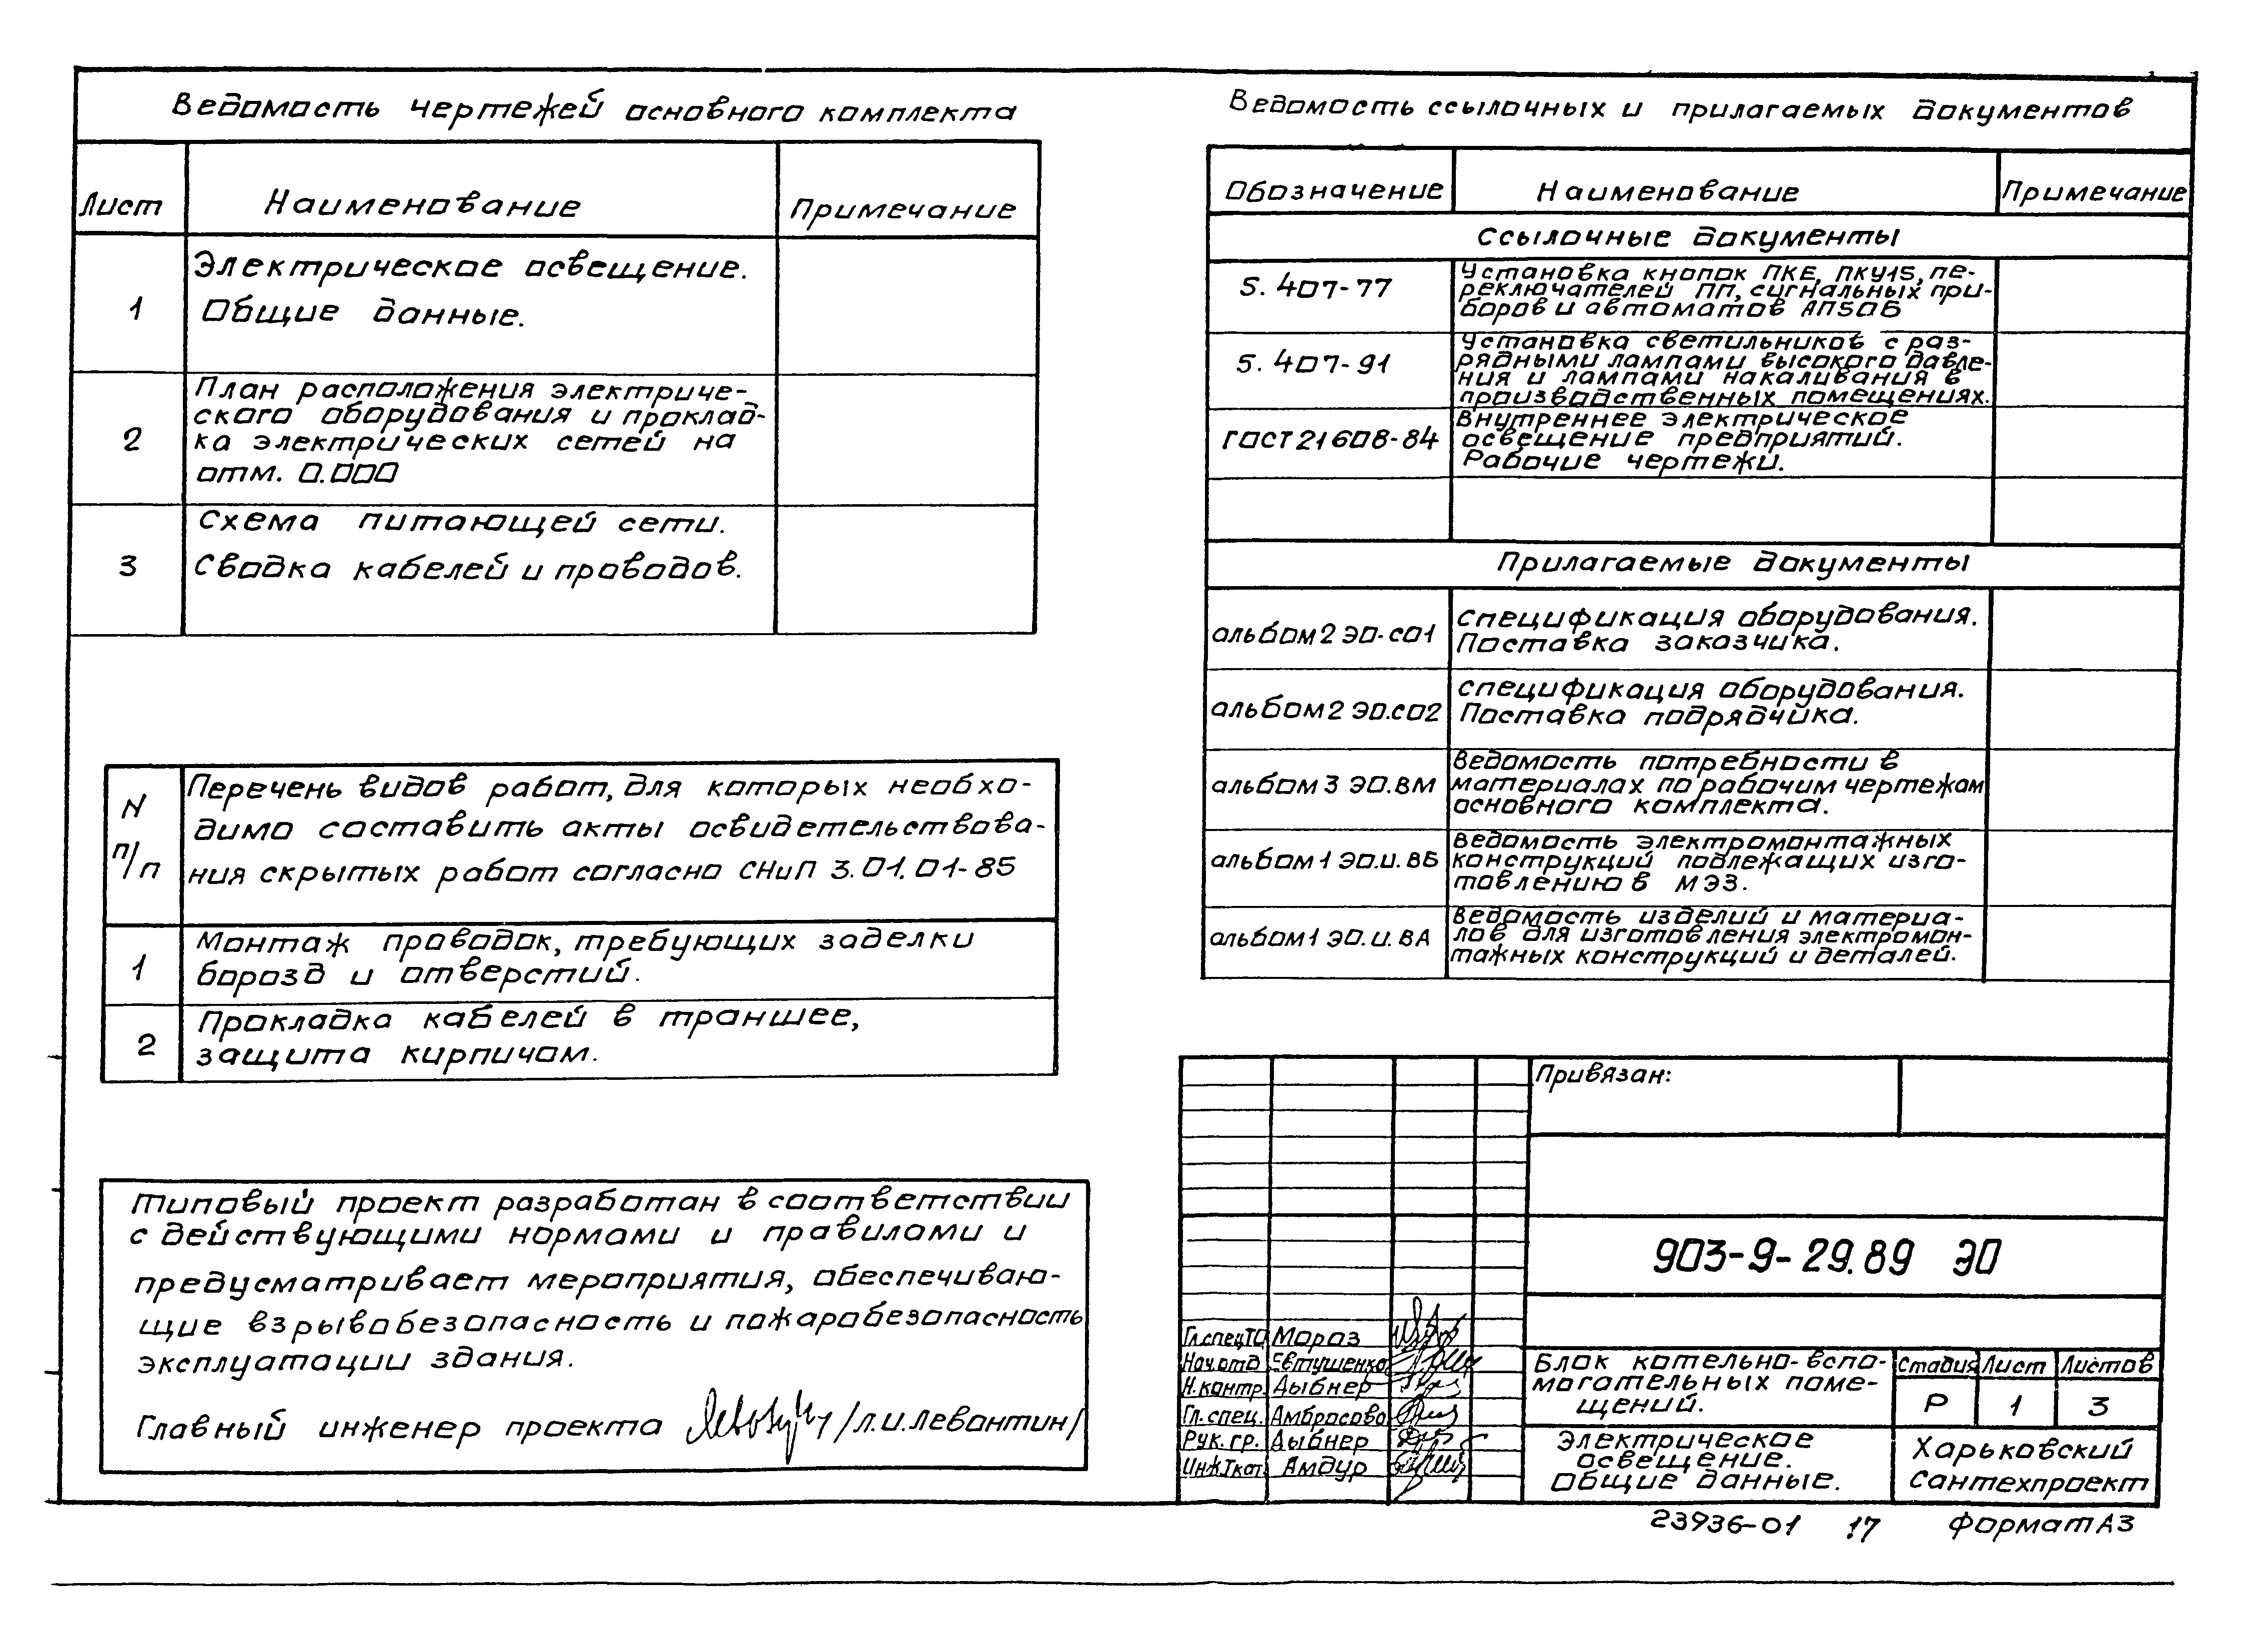 Ведомость чертежей основного комплекта
Лист Наименование Примечание
1 Электрическое освещение.
Общие данные.
2 План расположения электриче-
ского оборудования и проклад-
ка электрических сетей на
отм. 0.000
3 Схема питающей сети.
Сводка кабелей и проводов.
N п/п Перечень видов работ, для которых необхо-
димо составить акты освидетельствова-
ния скрытых работ согласно СНиП 3.01.01-85
1 Монтаж проводок, требующих заделки
борозд и отверстий.
2 Прокладка кабелей в траншее,
защита кирпичом.
Типовый проект разработан в соответствии
с действующими нормами и правилами и
предусматривает мероприятия, обеспечиваю-
щие взрывобезопасность и пожаробезопасность
эксплуатации здания.
Главный инженер проекта /Л.И.Левантин/
Ведомость ссылочных и прилагаемых документов
Обозначение Наименование Примечание
Ссылочные документы
5.407-77 Установка кнопок ПКЕ, ПКУ15, пе-
реключателей ПП, сигнальных при-
боров и автоматов АП50Б
5.407-91 Установка светильников с раз-
рядными лампами высокого давле-
ния и лампами накаливания в
производственных помещениях.
ГОСТ 21608-84 Внутреннее электрическое
освещение предприятий.
Рабочие чертежи.
Прилагаемые документы
альбом 2 ЭО.СО1 Спецификация оборудования.
Поставка заказчика.
альбом 2 ЭО.СО2 Спецификация оборудования.
Поставка подрядчика.
альбом 3 ЭО.ВМ Ведомость потребности в
материалах по рабочим чертежам
основного комплекта.
альбом 1 ЭО.И.ВБ Ведомость электромонтажных
конструкций подлежащих изго-
товлению в МЭЗ.
альбом 1 ЭО.И.ВА Ведомость изделий и материа-
лов для изготовления электромон-
тажных конструкций и деталей.
Привязан:
903-9-29.89 ЭО
Гл.спецТО Мороз
Нач.отд Евтушенко
Н.контр. Дыбнер
Гл.спец. Амбросова
Рук.гр. Дыбнер
Инж.Iкат. Амдур
Блок котельно-вспо-
могательных поме-
щений.
Стадия Лист Листов
Р 1 3
Электрическое
освещение.
Общие данные.
Харьковский
Сантехпроект
23936-01 17 Формат А3